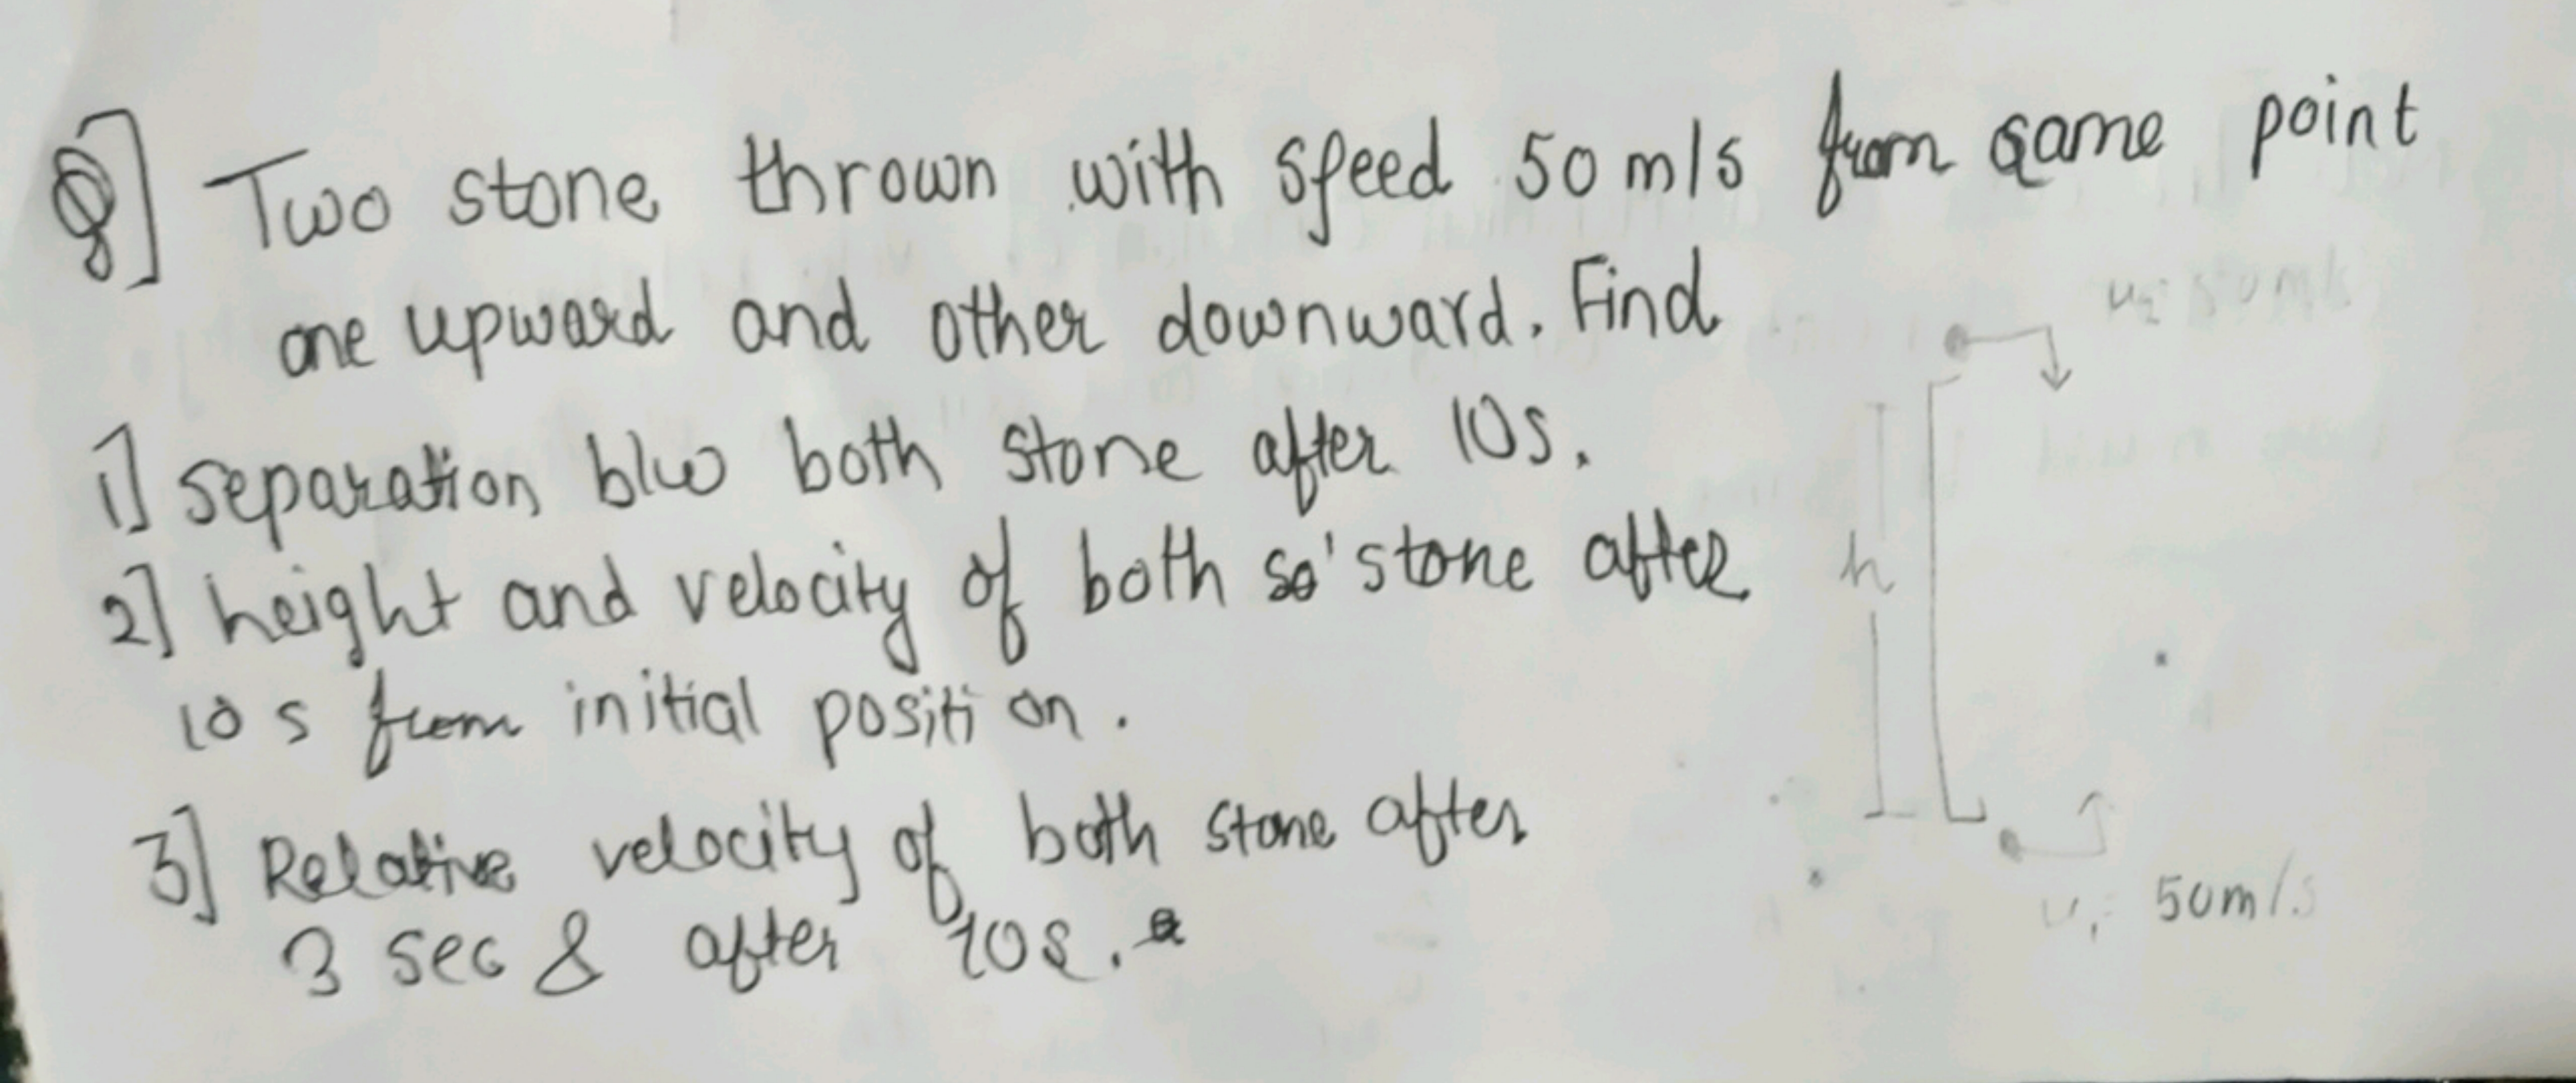 Q] Two stone thrown with speed 50 m/s from same point
one upward and other downward. Find
1] separation b/w both stone after 10s.
2] height and velocity of both so' stone after
10 s from initial position.
3] Relative velocity of both stone after
3 sec & after 10s.
h
u₁ = 50m/s